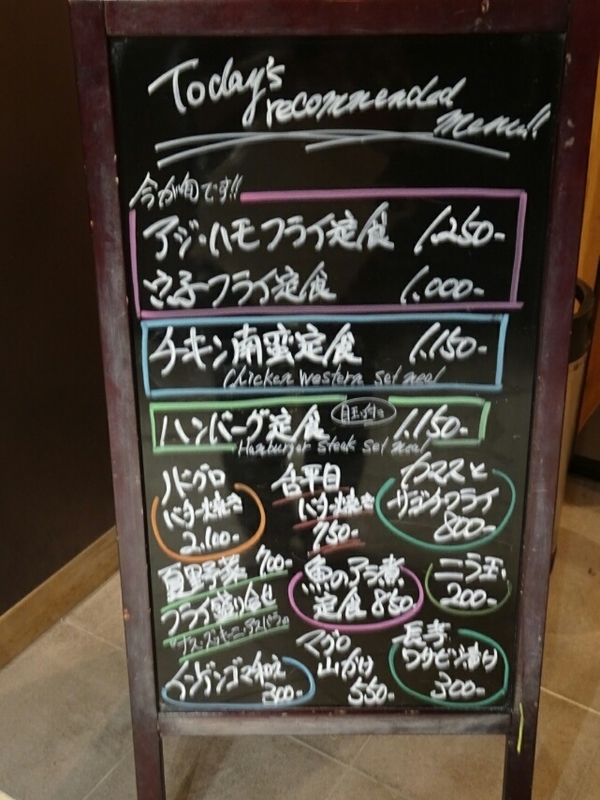 Today's
recommended
menu!!
今が旬です!!
アジ・ハモフライ定食 1,250-
穴子フライ定食 1,000-
チキン南蛮定食 1,150-
Chicken Western set meal
ハンバーグ定食 1,150-
Hamburger steak set meal
ノドグロ
バター焼き
2,100-
舌平目
バター焼き
750-
カマスと
サゴチフライ
800-
夏野菜 700-
フライ盛り合せ
ナス・ズッキーニ・アスパラ
魚のアラ煮
定食 850-
ニラ玉
200-
インゲンゴマ和え
300-
マグロ
山かけ
550-
長芋
ワサビ漬け
300-